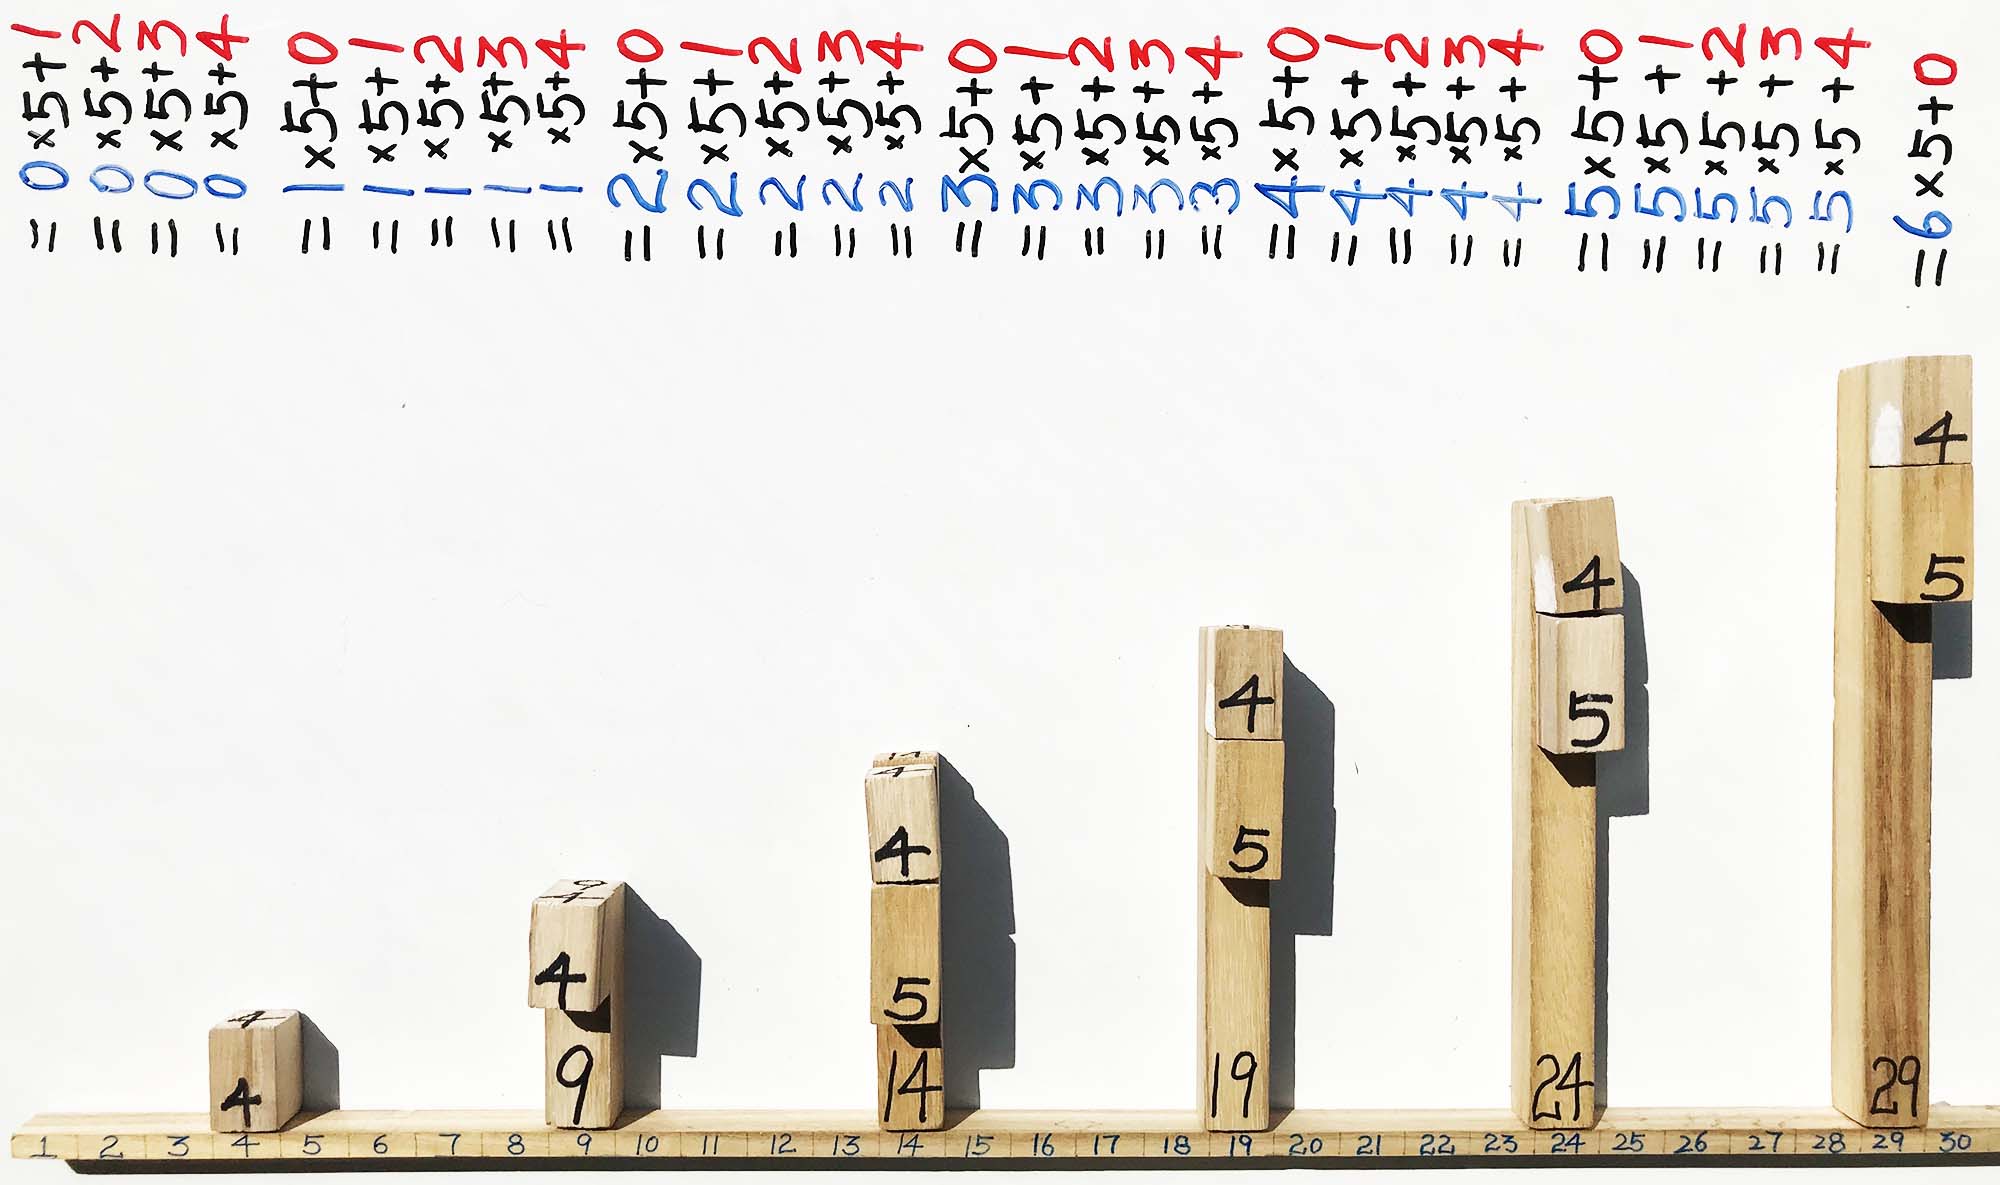 = 0 × 5 + 1
= 0 × 5 + 2
= 0 × 5 + 3
= 0 × 5 + 4
= 1 × 5 + 0
= 1 × 5 + 1
= 1 × 5 + 2
= 1 × 5 + 3
= 1 × 5 + 4
= 2 × 5 + 0
= 2 × 5 + 1
= 2 × 5 + 2
= 2 × 5 + 3
= 2 × 5 + 4
= 3 × 5 + 0
= 3 × 5 + 1
= 3 × 5 + 2
= 3 × 5 + 3
= 3 × 5 + 4
= 4 × 5 + 0
= 4 × 5 + 1
= 4 × 5 + 2
= 4 × 5 + 3
= 4 × 5 + 4
= 5 × 5 + 0
= 5 × 5 + 1
= 5 × 5 + 2
= 5 × 5 + 3
= 5 × 5 + 4
= 6 × 5 + 0
4
4
9
4
4
9
4
4
5
14
4
5
19
4
5
24
4
5
29
1 2 3 4 5 6 7 8 9 10 11 12 13 14 15 16 17 18 19 20 21 22 23 24 25 26 27 28 29 30